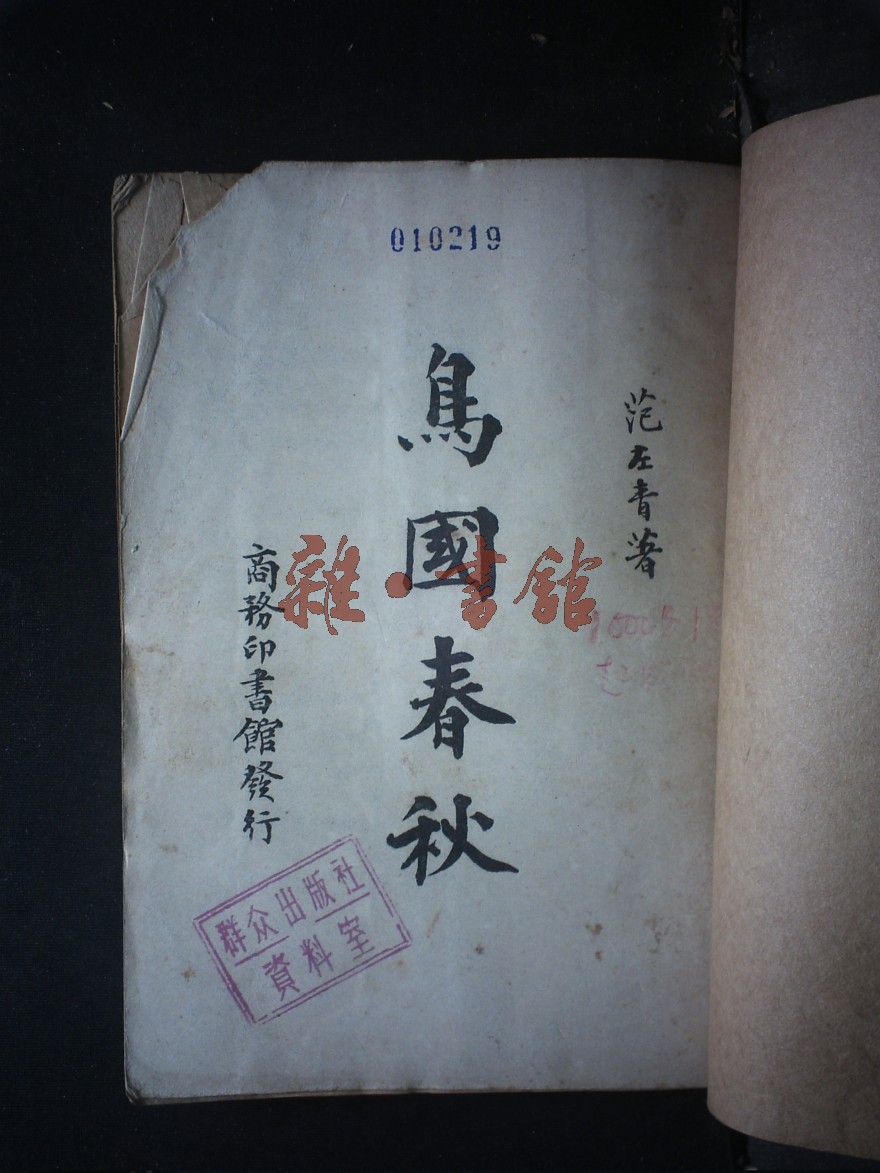 010219
范左青著
鳥國春秋
商務印書館發行
雜·書館
群众出版社
資料室